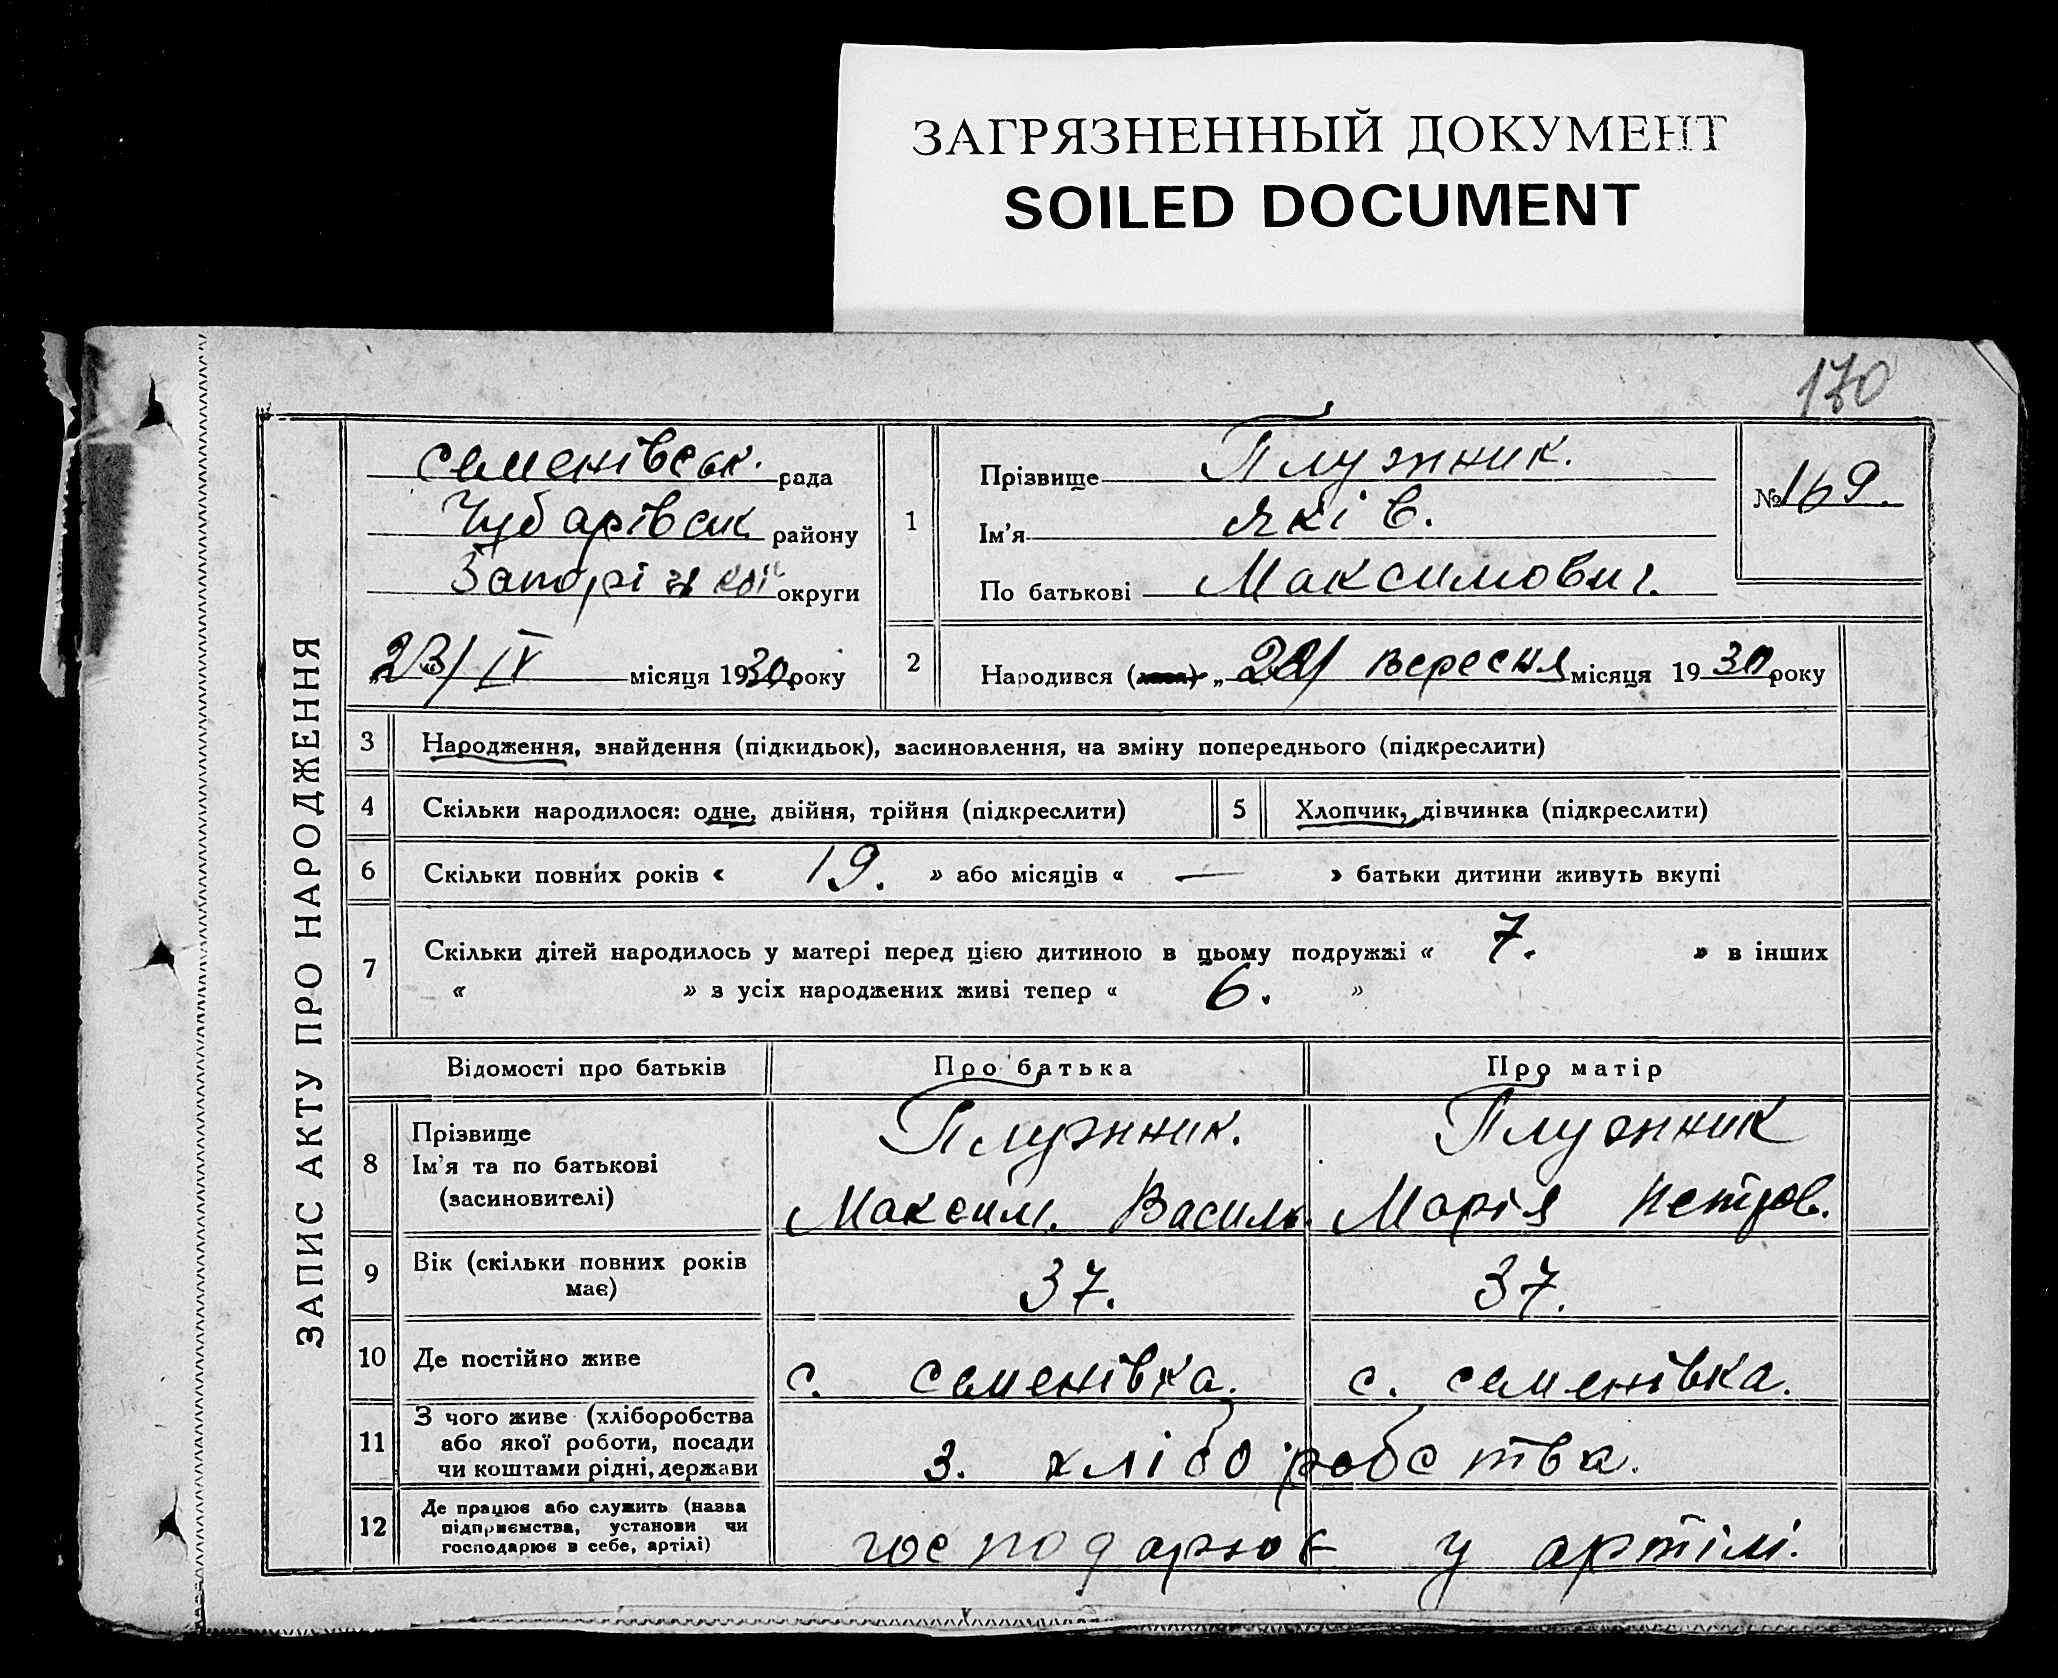 ЗАГРЯЗНЕННЫЙ ДОКУМЕНТ
SOILED DOCUMENT
170
ЗАПИС АКТУ ПРО НАРОДЖЕННЯ
Семенівськ. рада
Чубарівськ району
Запоріжської округи
„23/ IX місяця 1930 року
1
Прізвище Плужник.
Ім'я Яків.
По батькові Максимович.
№ 169.
2 Народився „22/ вересня місяця 1930 року
3 Народження, знайдення (підкидьок), засиновлення, на зміну попереднього (підкреслити)
4 Скільки народилося: одне, двійня, трійня (підкреслити) 5 Хлопчик, дівчинка (підкреслити)
6 Скільки повних років « 19. » або місяців « — » батьки дитини живуть вкупі
7 Скільки дітей народилось у матері перед цією дитиною в цьому подружжі « 7. » в інших
« » з усіх народжених живі тепер « 6. »
Відомості про батьків Про батька Про матір
8 Прізвище Плужник. Плужник
Ім'я та по батькові
(засиновителі) Максим. Василь. Марія Петров.
9 Вік (скільки повних років
має) 37. 37.
10 Де постійно живе с. Семенівка. с. Семенівка.
11 З чого живе (хліборобства
або якої роботи, посади
чи коштами рідні, держави з. хліборобства.
12 Де працює або служить (назва
підприємства, установи чи
господарює в себе, артілі) господарює у артілі.